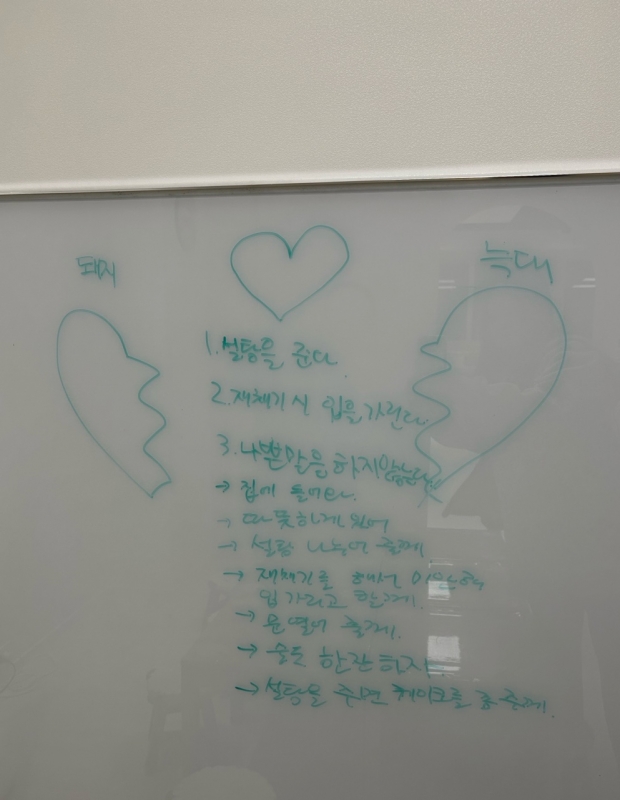 돼지
늑대
1. 설탕을 준다.
2. 재채기 시 입을 가린다.
3. 나쁜말을 하지않는다
→ 집에 들어와.
→ 따뜻하게 있어
→ 설탕 나눠어 줄께
→ 재채기를 해서 미안해
입 가리고 할께.
→ 문 열어 줄께.
→ 술도 한잔 하자.
→ 설탕을 주면 케이크를 좀 줄께.